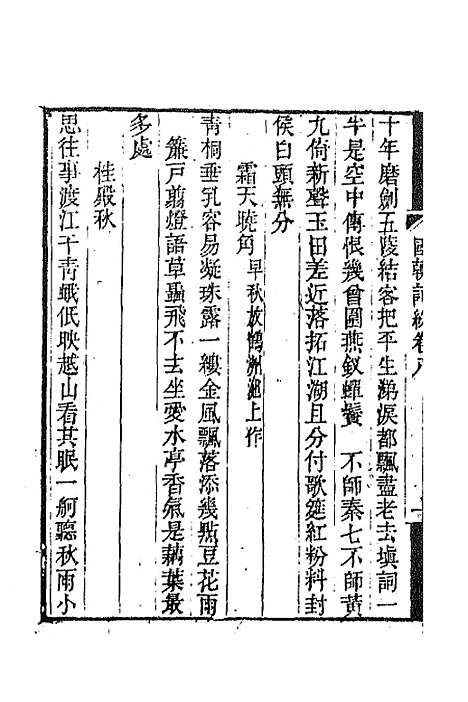 國朝詞綜卷八
十年磨劍五陵結客把平生涕淚都飄盡老去塡詞一
半是空中傳恨幾曾圍燕釵蟬鬢　不師秦七不師黃
九倚新聲玉田差近落拓江湖且分付歌筵紅粉料封
侯白頭無分
霜天曉角 早秋放鶴洲池上作
靑桐垂乳容易凝珠露一縷金風飄落添幾點豆花雨
簾戶翦燈語草蟲飛不去坐愛水亭香氣是藕葉最
多處
桂殿秋
思往事渡江干靑蛾低映越山看共眠一舸聽秋雨小